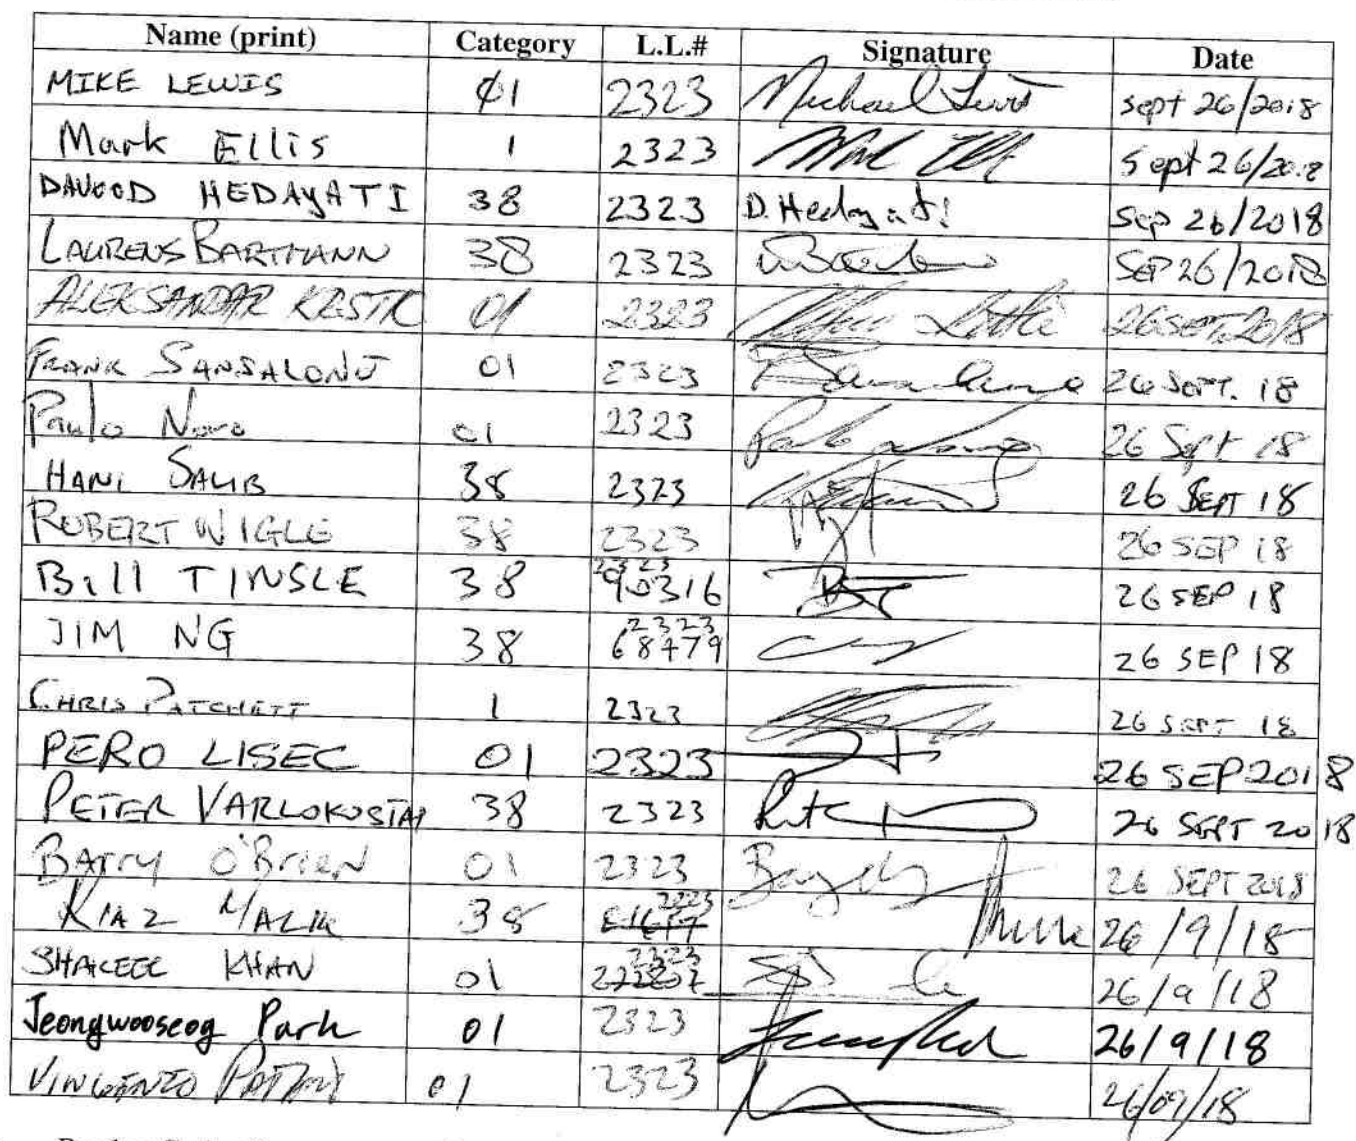 Name (print) Category L.L.# Signature Date
MIKE LEWIS 01 2323 Michael Lewis sept 26/2018
Mark Ellis 1 2323 Sept 26/2018
DAVOOD HEDAYATI 38 2323 D. Hedayati Sep 26/2018
LAURENS BARTMANN 38 2323 SEP 26/2018
ALEKSANDAR KRSTIC 01 2323 26 SEPT. 2018
FRANK SANSALONE 01 2323 26 SEPT. 18
Paulo Novo 01 2323 26 Sept 18
HANI SALIB 38 2323 26 SEPT 18
ROBERT WIGLE 38 2323 26 SEP 18
Bill TINSLE 38 2323 90316 26 SEP 18
JIM NG 38 2323 68479 26 SEP 18
CHRIS PATCHETT 1 2323 26 SEPT 18
PERO LISEC 01 2323 26 SEP 2018
PETER VARLOKOSTAS 38 2323 26 SEPT 2018
BARRY O'BRIEN 01 2323 26 SEPT 2018
RIAZ MALIK 38 2323 26/9/18
SHAKEEL KHAN 01 2323 26/9/18
Jeongwooseog Park 01 2323 26/9/18
VINCENZO 01 2323 26/09/18